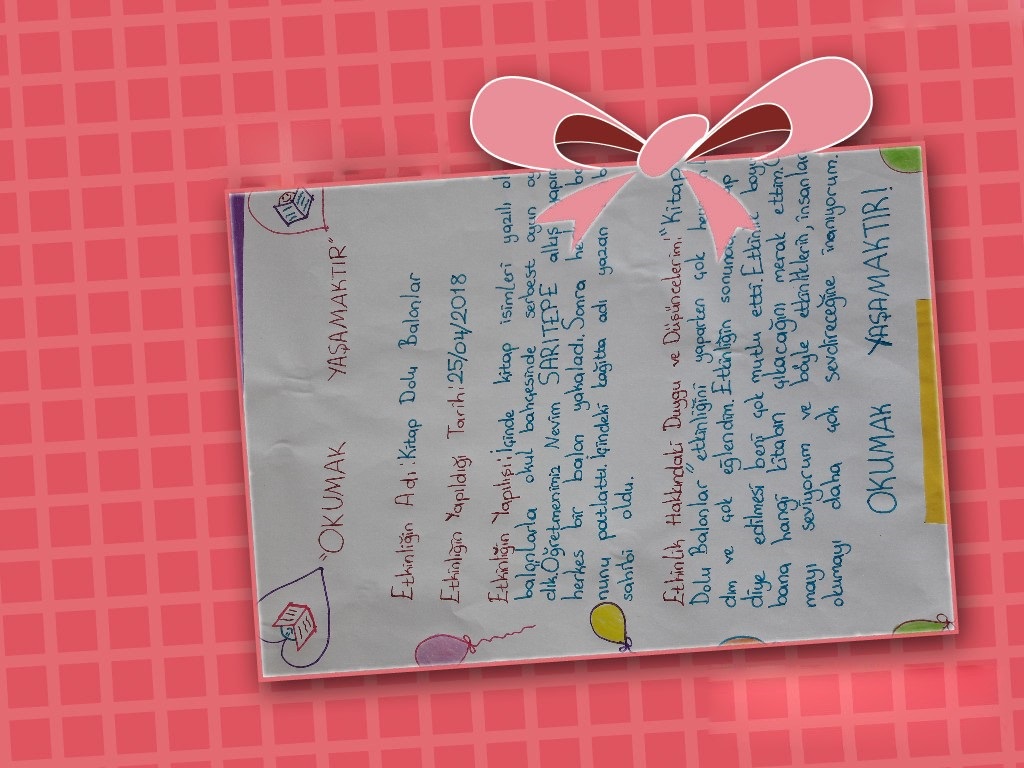 "OKUMAK YAŞAMAKTIR"
Etkinliğin Adı: Kitap Dolu Balonlar
Etkinliğin Yapıldığı Tarih: 25/04/2018
Etkinliğin Yapılışı: İçinde kitap isimleri yazılı
balonlarla okul bahçesinde serbest oyun
dık. Öğretmenimiz Nevim SARITEPE alkış
herkes bir balon yakaladı. Sonra
nunu patlattı. İçindeki kağıtta adı yazan
sahibi oldu.
Etkinlik Hakkındaki Duygu ve Düşüncelerim: "Kitap
Dolu Balonlar" etkinliğini yaparken çok
dım ve çok eğlendim. Etkinliğin sonunda
diye edilmesi beni çok mutlu etti. Etkinlik
bana hangi kitabın çıkacağını merak ettim.
mayı seviyorum ve böyle etkinliklerin, insanlar
okumayı daha çok sevdireceğine inanıyorum.
OKUMAK YAŞAMAKTIR!